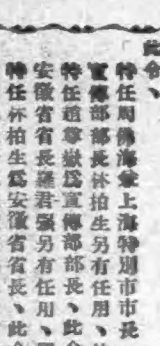 此令、
特任周佛海兼上海特別市市長
宣傳部部長林柏生另有任用、
特任趙尊嶽爲宣傳部部長、此
安徽省省長羅君强另有任用、
特任林柏生爲安徽省省長、此